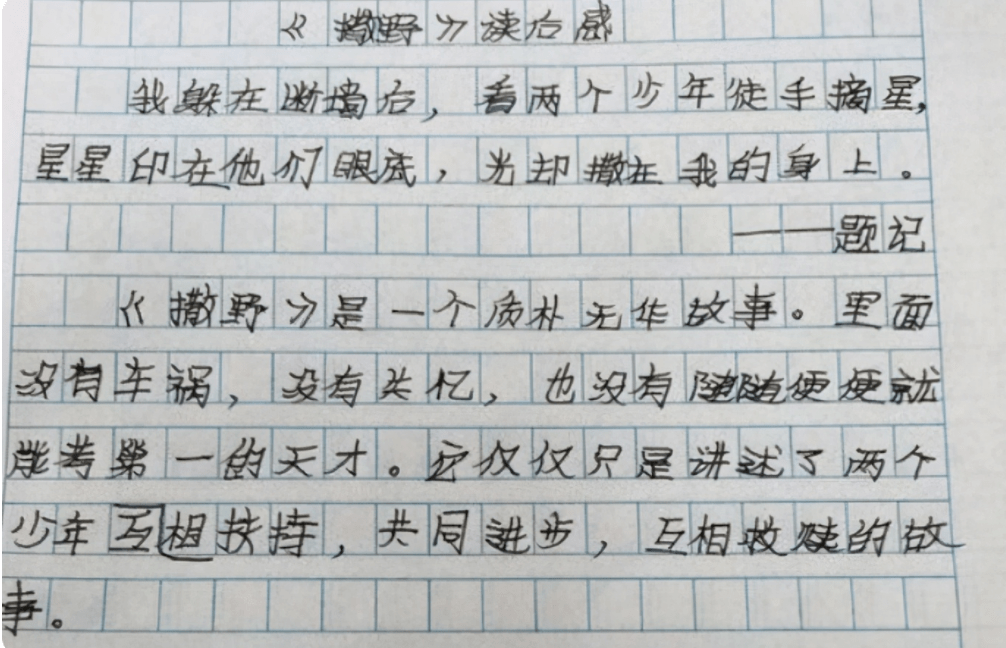 《撒野》读后感
我躲在断墙后，看两个少年徒手摘星，
星星印在他们眼底，光却撒在我的身上。
——题记
《撒野》是一个质朴无华故事。里面
没有车祸，没有失忆，也没有随随便便就
能考第一的天才。它仅仅只是讲述了两个
少年互相扶持，共同进步，互相救赎的故
事。